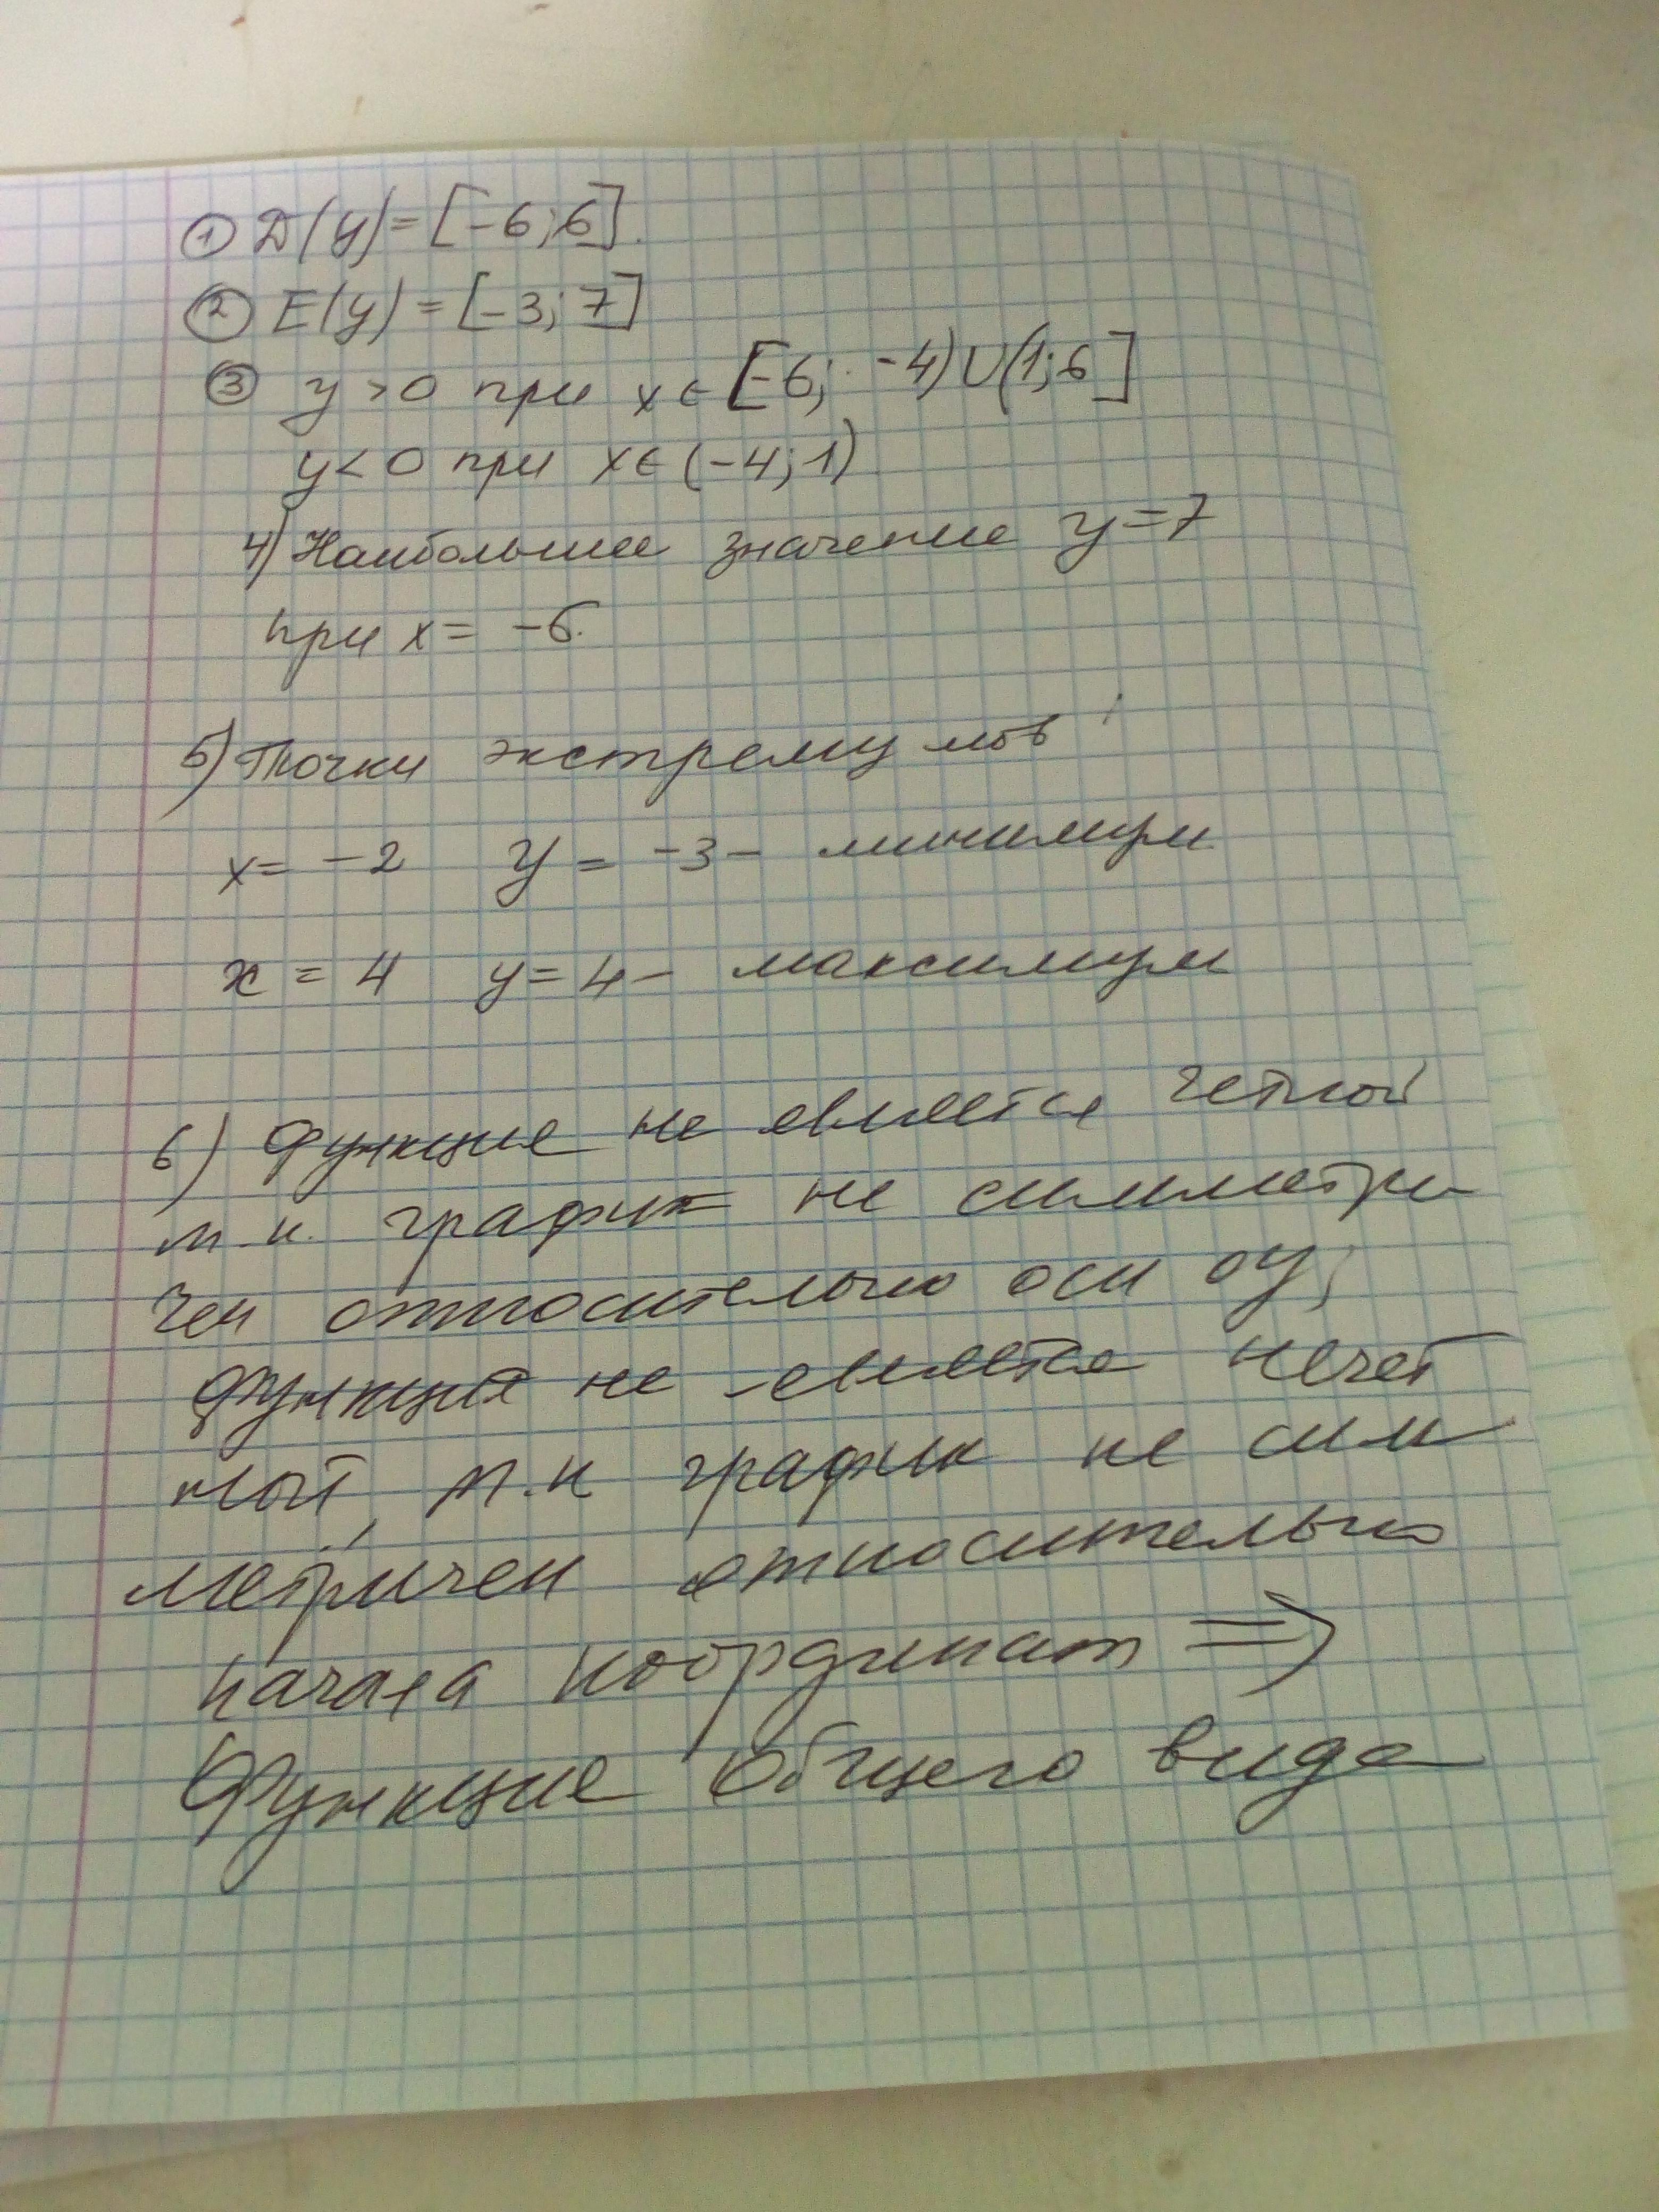 ① D(y)=[-6;6].
② E(y)=[-3;7]
③ y>0 при x∈[-6; -4)∪(1;6]
y<0 при x∈(-4;1)
4) Наибольшее значение y=7
при x= -6.
5) Точки экстремумов:
x= -2 y = -3 - минимум
x = 4 y=4- максимум
6) Функция не является четной
т.к. график не симметри
чен относительно оси оу;
функция не является нечет
ной, т.к график не сим
метричен относительно
начала координат ⇒
Функция общего вида